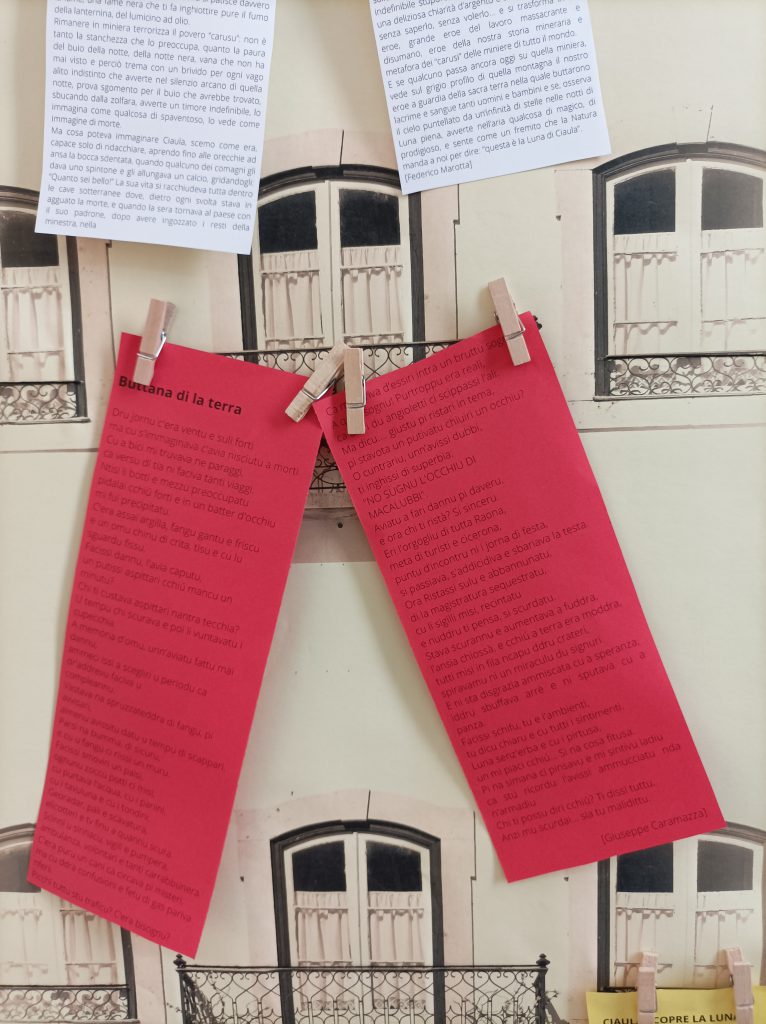 una fame nera che ti fa inghiottire pure il fumo
della lanternina, del lumicino ad olio.
Rimanere in miniera terrorizza il povero "carusu": non è
tanto la stanchezza che lo preoccupa, quanto la paura
del buio della notte, della notte nera, vana che non ha
mai visto e perciò trema con un brivido per ogni vago
alito indistinto che avverte nel silenzio arcano di quella
notte, prova sgomento per il buio che avrebbe trovato,
sbucando dalla zolfara, avverte un timore indefinibile, lo
immagina come qualcosa di spaventoso, lo vede come
immagine di morte.
Ma cosa poteva immaginare Ciaula, scemo come era,
capace solo di ridacchiare, aprendo fino alle orecchie ad
ansa la bocca sdentata, quando qualcuno dei comagni gli
dava uno spintone e gli allungava un calcio, gridandogli:
"Quanto sei bello!" La sua vita si racchiudeva tutta dentro
le cave sotterranee dove, dietro ogni svolta stava in
agguato la morte, e quando la sera tornava al paese con
il suo padrone, dopo avere ingozzato i resti della
minestra, nella
indefinibile
una deliziosa chiarità d'argento e
senza saperlo, senza volerlo... e si trasforma in
eroe, grande eroe del lavoro massacrante e
disumano, eroe della nostra storia mineraria e
metafora dei "carusi" delle miniere di tutto il mondo.
E se qualcuno passa ancora oggi su quella miniera,
vede sul grigio profilo di quella montagna il nostro
eroe a guardia della sacra terra nella quale buttarono
lacrime e sangue tanti uomini e bambini e se, osserva
il cielo puntellato da un'infinità di stelle nelle notti di
Luna piena, avverte nell'aria qualcosa di magico, di
prodigioso, e sente come un fremito che la Natura
manda a noi per dire: "questa è la Luna di Ciaula".
[Federico Marotta]
Buttana di la terra
Dru jornu c'era ventu e suli forti
ma cu s'immaginava c'avia nisciutu a morti.
Cu a bici mi truvava ne paraggi,
ca versu di tia ni faciva tanti viaggi.
Ntisi li botti e mezzu preoccupatu
pidalai cchiù forti e in un batter d'occhiu
mi fui precipitatu.
C'era assai argilla, fangu gantu e friscu
e un omu chinu di crita, tisu e cu lu
sguardu fissu.
Facissi dannu, l'avia caputu,
un putissi aspittari cchiù mancu un
minutu?
Chi ti custava aspittari nantra tecchia?
U tempu chi scurava e poi ti vuntavatu i
cupecchia.
A memoria d'omu, unn'aviatu fattu mai
dannu,
ammeci issi a scegliri u periodu ca
or'addrevu faciva u
compleannu.
avisari,
almenu avissitu datu u tempu di scappari,
Parsi na bumma, di sicuru,
e cu u fangu ci rissi un muru.
Facissi smoviri un paisi,
ognunu zoccu potti ci misi,
cu purtava l'acqua, cu i panini,
cu i tavuluna e cu i tondini.
Georadar, pali e scavatura,
elicotteri e tv finu a quannu scura.
Scinni u sinnacu, vigili e pumpera,
ambulanza, volontari e tanti carrabbunera.
C'era puru un cani ca circava pi misteri,
ma cu ddra confusioni e fetu di gas pariva
nteri.
Picchi tuttu stu traficu? C'era bisognu?
d'essiri intra un bruttu
sognu! Purtroppu era reali,
du angioletti ci scippassi l'ali.
Ma dicu... giustu pi ristari in tema,
pi stavota un putivatu chiuiri un occhiu?
O cuntrariu, unn'avissi dubbi,
ti inghissi di superbia:
"NO SUGNU L'OCCHIU DI
MACALUBBI".
Aviatu a fari dannu pi daveru,
e ora chi ti ristà? Si sinceru.
Eri l'orgogliu di tutta Raona,
meta di turisti e cicerona,
puntu d'incontru ni i jorna di festa,
si passiava, s'addicidiva e sbariava la testa.
Ora Ristassi sulu e abbannunatu,
di la magistratura sequestratu,
cu li sigilli misi, recintatu
e nuddru ti pensa, si scurdatu.
Stava scurannu e aumentava a fuddra,
l'ansia chiossà, e cchiù a terra era moddra,
tutti misi in fila ricapu ddru crateri,
spiravamu ni un miraculu du signuri.
E ni sta disgrazia ammiscata cu a speranza,
iddru sbuffava arrè e ni sputava cu a
panza.
Facissi schifu, tu e l'ambienti,
tu dicu chiaru e cu tutti i sintimenti.
Luna senz'erba e cu i pirtusa,
un mi piaci cchiù... Si na cosa fitusa.
Pi na simana ci pinsavu e mi sintivu ladiu
ca stu ricordu l'avissi ammucciatu nda
n'armadiu
Chi ti possu diri cchiù? Ti dissi tuttu.
Anzi mu scurdai... sia tu malidittu.
[Giuseppe Caramazza]
CIAULA SCOPRE LA LUNA